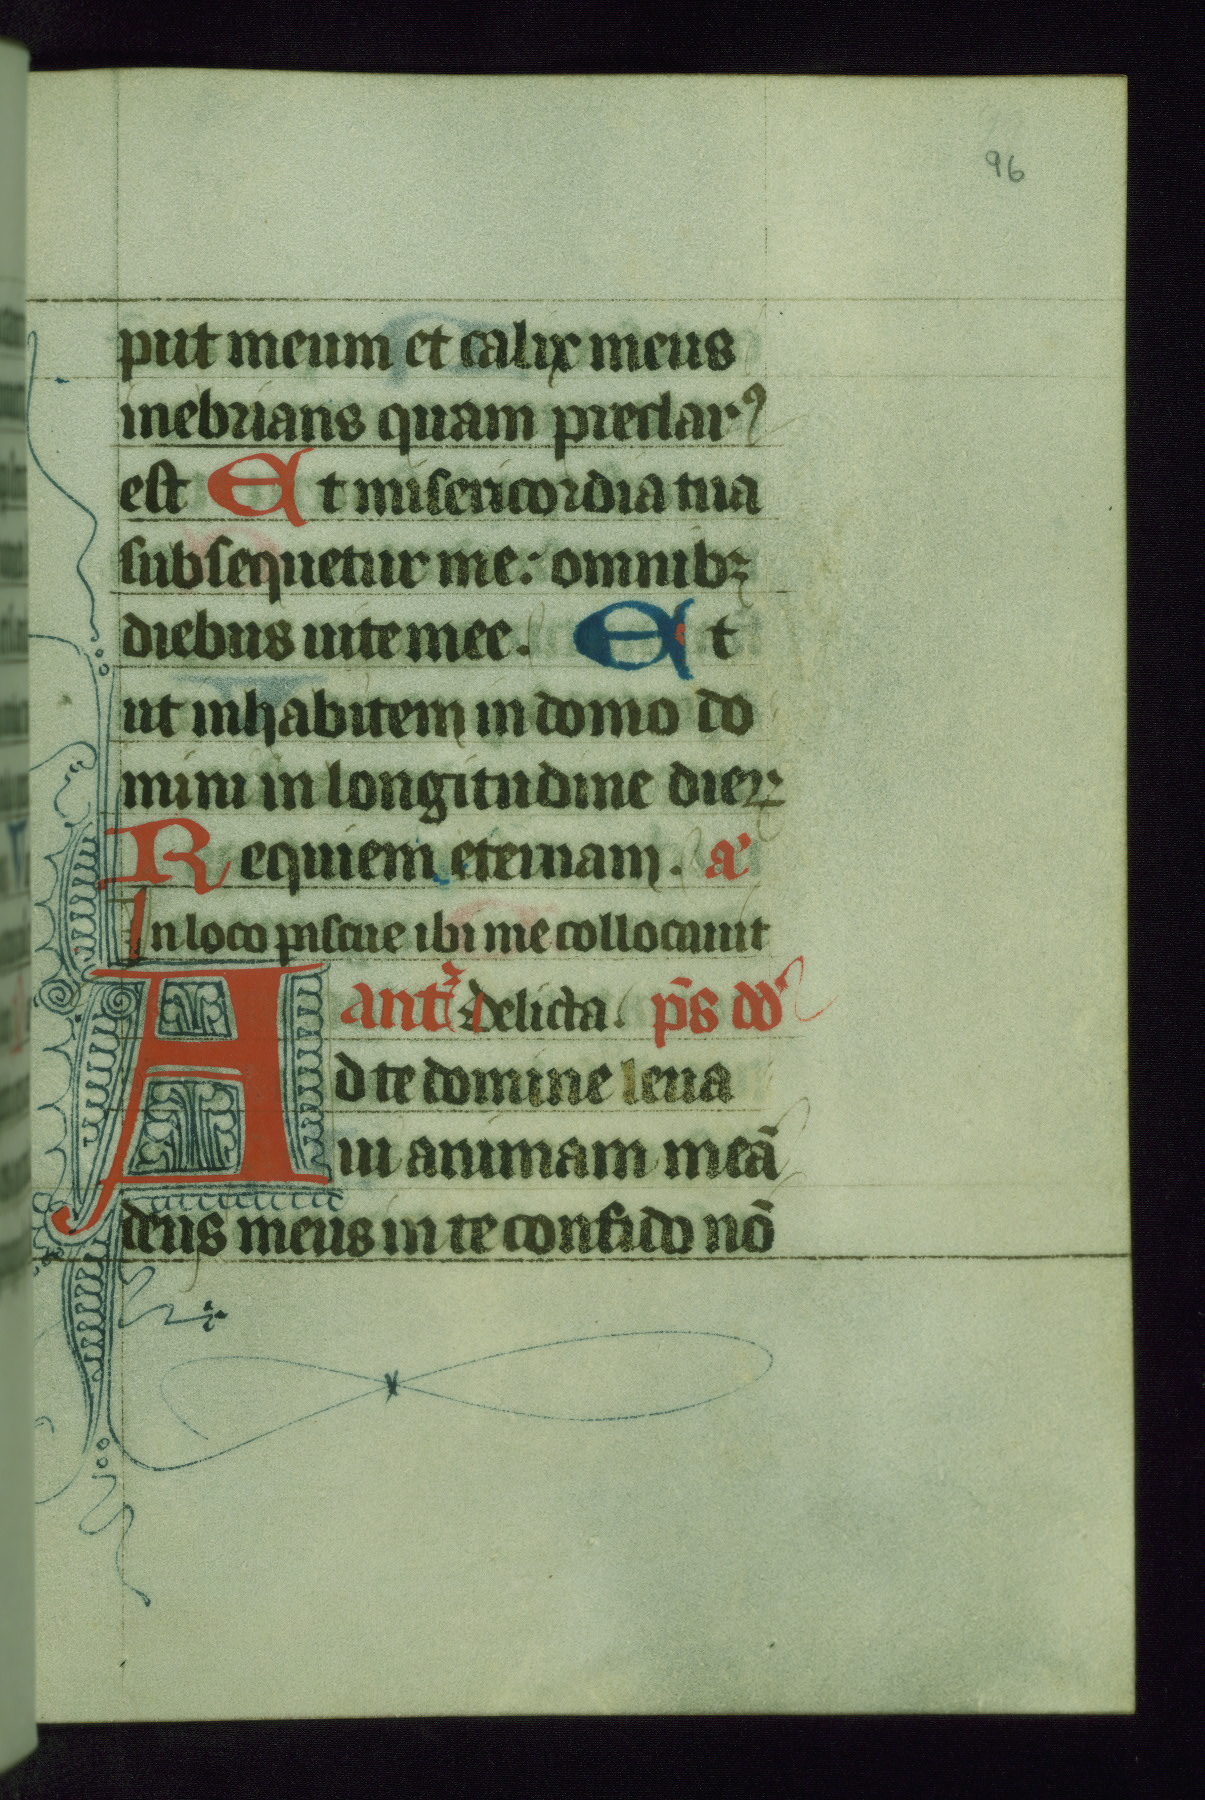 96
put meum et calix meus
inebrians quam preclarꝰ
est Et misericordia tua
subsequetur me: omnibꝫ
diebus uite mee. Et
ut inhabitem in domo do
mini in longitudine dieꝝ
Requiem eternam. a͛
In loco pascue ibi me collocauit
ant͛ delicta. p̄s dd͛
Ad te domine leua
ui animam meā
deus meus in te confido nō